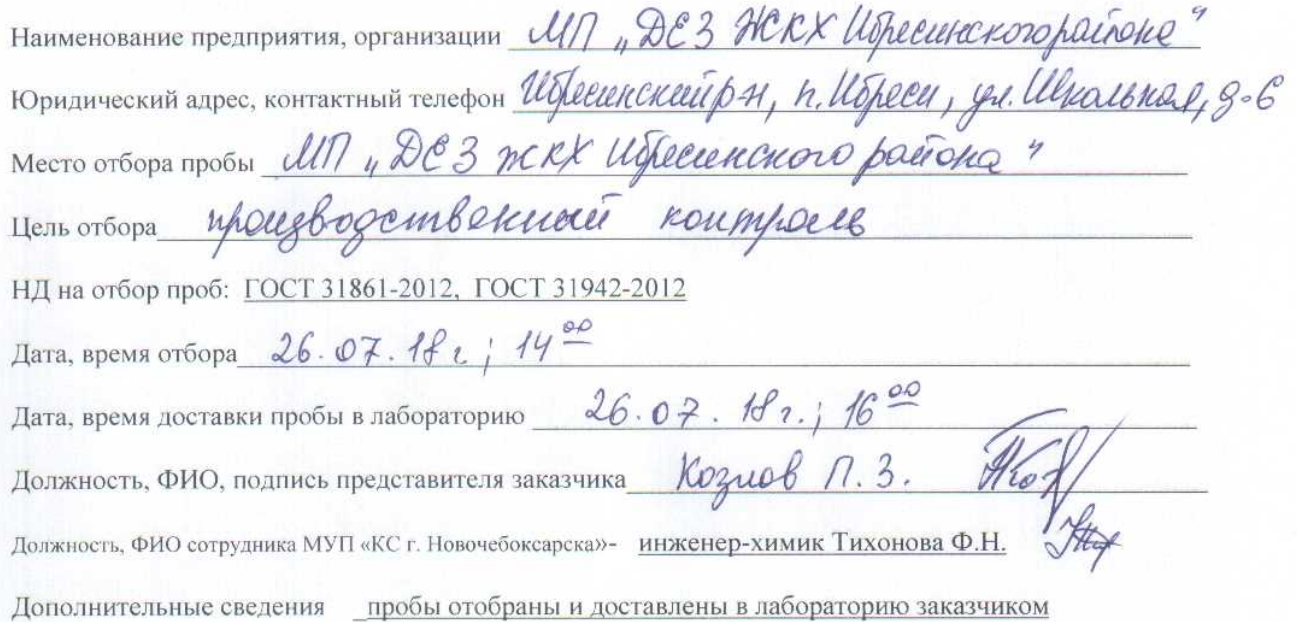 Наименование предприятия, организации МП „ДЕЗ ЖКХ Ибресинского района"
Юридический адрес, контактный телефон Ибресинский р-н, п. Ибреси, ул. Школьная, д-6
Место отбора пробы МП „ДЕЗ ЖКХ Ибресинского района"
Цель отбора производственный контроль
НД на отбор проб: ГОСТ 31861-2012, ГОСТ 31942-2012
Дата, время отбора 26.07.18 г; 14 00
Дата, время доставки пробы в лабораторию 26.07.18г.; 16 00
Должность, ФИО, подпись представителя заказчика Козлов П.З.
Должность, ФИО сотрудника МУП «КС г. Новочебоксарска»- инженер-химик Тихонова Ф.Н.
Дополнительные сведения пробы отобраны и доставлены в лабораторию заказчиком